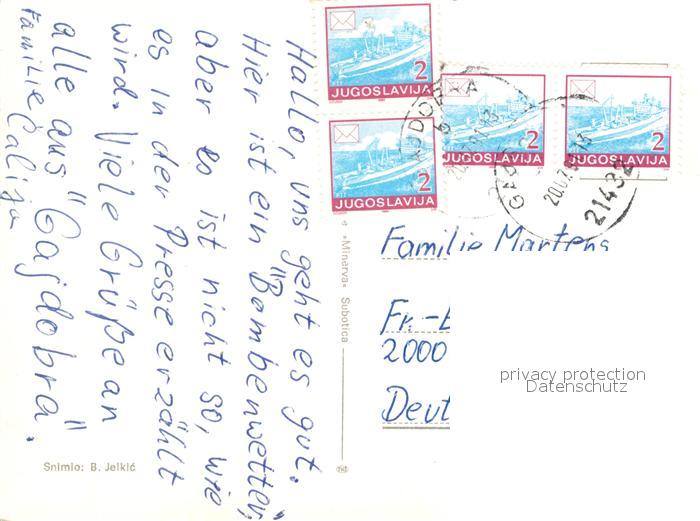 Hallo, uns geht es gut.
Hier ist ein "Bombenwetter",
aber es ist nicht so, wie
es in der Presse erzählt
wird. Viele Grüße an
alle aus "Gajdobra".
Familie
Snimio: B. Jelkić
«Minerva» Subotica
2
JUGOSLAVIJA
2
JUGOSLAVIJA
2
JUGOSLAVIJA
2
JUGOSLAVIJA
21432
Familie Martens
Fr.-
2000
Deut
privacy protection
Datenschutz